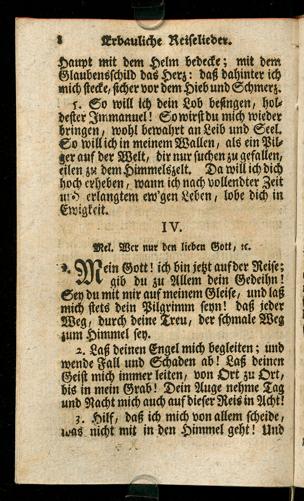 8 Erbauliche Reiselieder.
Haupt mit dem Helm bedecke; mit dem
Glaubensschild das Herz: daß dahinter ich
mich stecke, sicher vor dem Hieb und Schmerz.
5. So will ich dein Lob besingen, hol-
dester Immanuel! So wirst du mich wieder
bringen, wohl bewahrt an Leib und Seel.
So will ich in meinem Wallen, als ein Pil-
ger auf der Welt, dir nur suchen zu gefallen,
eilen zu dem Himmelszelt. Da will ich dich
hoch erheben, wann ich nach vollendter Zeit
und erlangtem ew'gen Leben, lobe dich in
Ewigkeit.
IV.
Mel. Wer nur den lieben Gott, ꝛc.
Mein Gott! ich bin jetzt auf der Reise;
gib du zu Allem dein Gedeihn!
Sey du mit mir auf meinem Gleise, und laß
mich stets dein Pilgrimm seyn! daß jeder
Weg, durch deine Treu, der schmale Weg
zum Himmel sey.
2. Laß deinen Engel mich begleiten; und
wende Fall und Schaden ab! Laß deinen
Geist mich immer leiten, von Ort zu Ort,
bis in mein Grab! Dein Auge nehme Tag
und Nacht mich auch auf dieser Reis in Acht!
3. Hilf, daß ich mich von allem scheide,
was nicht mit in den Himmel geht! Und